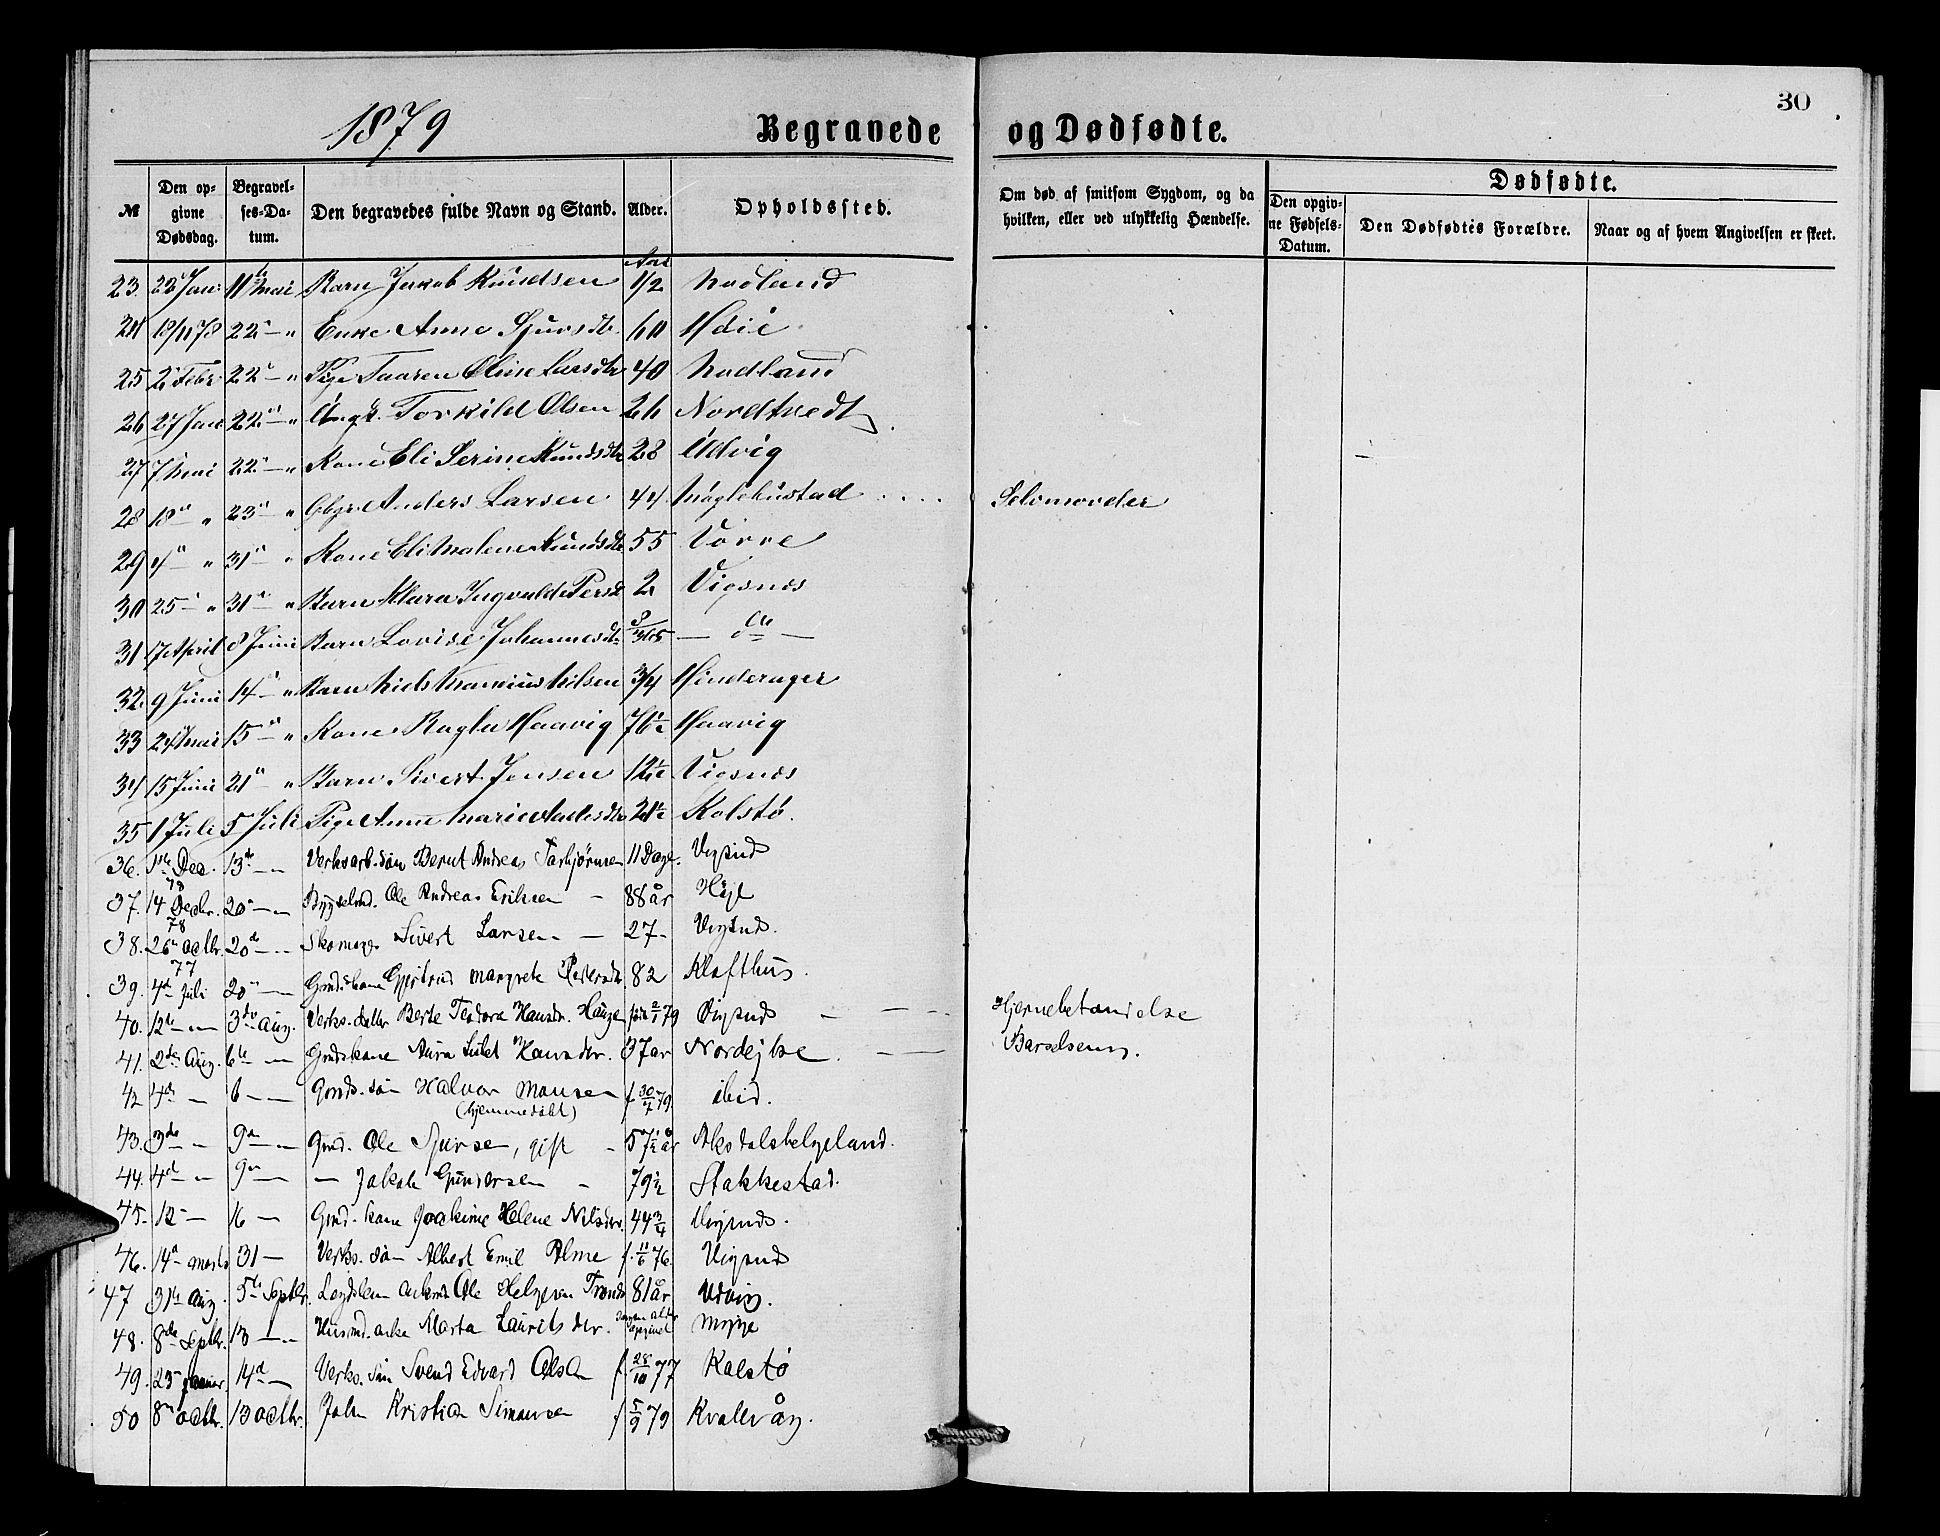 30
1879 Begravede og Dødfødte.
№ Den opgivne Dødsdag. Begravelses-Datum. Den begravedes fulde Navn og Stand. Alder. Opholdssted. Om død af smitsom Sygdom, og da hvilken, eller ved ulykkelig Hændelse. Dødfødte. Den opgivne Fødsels-Datum. Den Dødfødtes Forældre. Naar og af hvem Angivelsen er skeet.
23. 22 Jan: 11 Mai Barn Jakob Knudsen 1/2 Nodland
24 18/11 78 22 - " Enke Anne Sjursdtr. 60 Höie
25 2 Febr 22 - " Pige Taaren Oline Larsdtr 40 Nodland
26 27 Jan 22 - " Ungk. Torkild Olsen 26 Nordtvedt
27 7 Mai 22 - " Kone Eli Serine Knudsdtr 28 Udvig
28 18 " 23 " Anders Larsen 44 Selvmorder
29 4 " 31 " Kone Eli Malene Knudsdtr 55 Vorre
30 25 - " 31 - " Barn Klara Ingvalda Persd 2 Vigsnes
31 17 April 8 Juni Barn Lovise Johannesdtr 3/365 - do -
32. 9 Juni 14 - " Barn Niels Marius Nilsen 3/4 Hinderager
33 24 Mai 15 - " Kone Ragla Haavig 76 1/2 Haavig
34 15 Juni 21 " Barn Sivert Jensen 12 1/2 Vigsnes
35 1 Juli 5 Juli Pige Anne Marie 21 1/2 Kolstö.
36. 1ste Dec. 78 13de - Verksarb. sön Bernt Andreas Torbjörnsen 11 Dage. Vigsnes
37. 14 Decbr. 78 20 - - Ole Andreas Eriksen - 88 år
38. 26 octbr. 77 20de - - Skomager Sivert Larsen - 27 - Vigsnes.
39. 4de Juli 20 - Gmdskone Gjertrud Margrete Pedersdtr 82 Klofthus.
40. 12te - 3die Aug. Verks. datter Berte Teodora Hansdr. Hauge född 2/1 79 Vigsnes - - Hjernebetændelse
41. 2den Aug. 6te - Gmdskone Hansdtr. 37 år Nordejke. - - Barselseng.
42 4de - 6 - - Gmds. sön Halvor Monsen (hjemmedöbt) f 30/7 79 ibid.
43. 3de - 9de - Gmd. Ole Sjursen, gift - 57 1/2 år Aksdalshelgeland.
44. 4de - 9de - - Jakob Gundersen - 79 1/2 Stakkestad.
45. 12 - 16 - Gmd. kone Joakime Helene Nilsdtr. 44 3/4 Vigsnes.
46. 14de marts 31 - Verks. sön Albert Emil Alme f. 11/6 76. Vigsnes
47 31te Aug. 5te Septbr. Ole Helgesen 81 år Udvig.
48. 8de Septbr. 13 - - Husmd. enke Marta Lauritsdtr. ingen alder opgivet
49. 23 14de - Verks. sön Svend Edvard Olsen f. 28/10 77 Kalstö
50 8de octbr. 13 octbr. John Kristian Simonsen f 5/9 79 Kvalevåg.